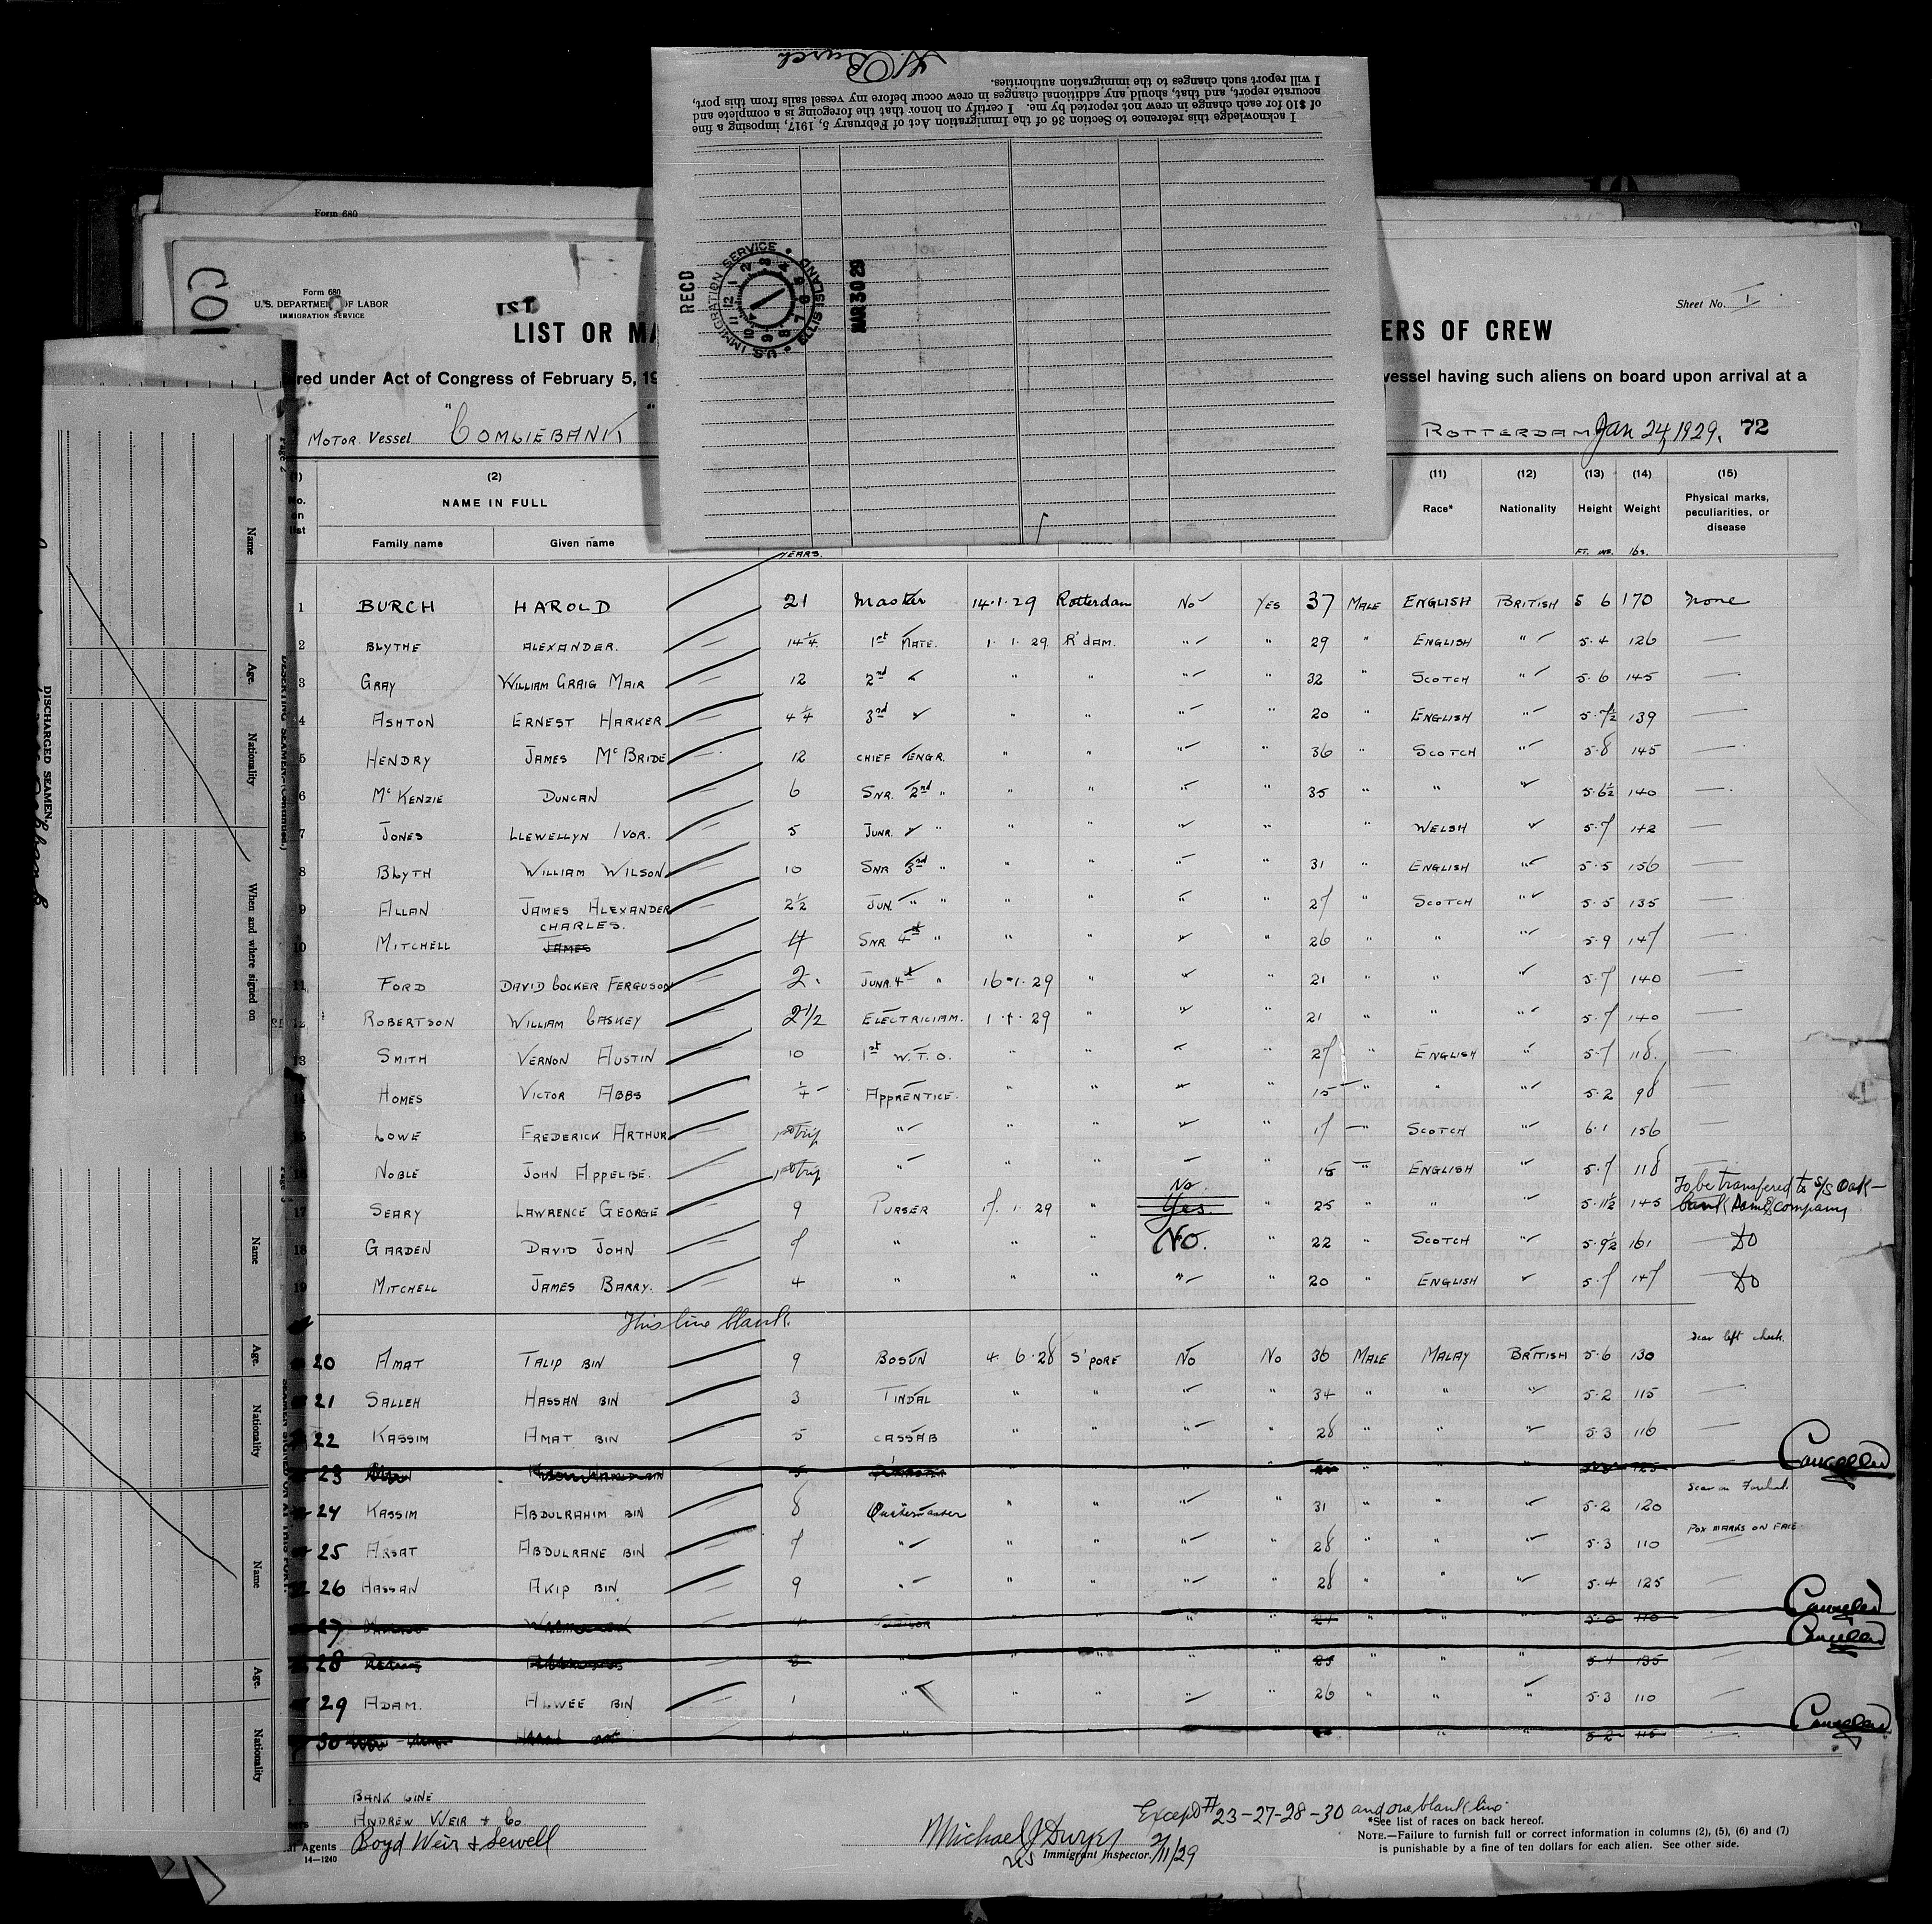 H. Burch
I acknowledge this reference to Section 36 of the Immigration Act of February 5, 1917, imposing a fine
of $10 for each change in crew not reported by me. I certify on honor that the foregoing is a complete and
accurate report, and that, should any additional changes in crew occur before my vessel sails from this port,
I will report such changes to the immigration authorities.
RECD
U.S. IMMIGRATION SERVICE • ELLIS ISLAND •
MAR 30 29
Form 680
Form 680
U.S. DEPARTMENT OF LABOR
IMMIGRATION SERVICE
Sheet No. 1
LIST OR MA
ERS OF CREW
red under Act of Congress of February 5, 19
vessel having such aliens on board upon arrival at a
MOTOR Vessel "COMLIEBANK"
ROTTERDAM Jan 24, 1929. 72
(1) (2) (11) (12) (13) (14) (15)
No. on list NAME IN FULL Race* Nationality Height Weight Physical marks, peculiarities, or disease
Family name Given name YEARS. FT. INS. lbs.
1 BURCH HAROLD 21 Master 14.1.29 Rotterdam No YES 37 MALE ENGLISH BRITISH 5 6 170 none
2 BLYTHE ALEXANDER. 14¼ 1st MATE. 1.1.29 R'DAM. " " 29 " ENGLISH " 5.4 126 —
3 GRAY WILLIAM CRAIG MAIR 12 2nd " " " " " 32 " SCOTCH " 5.6 145 —
4 ASHTON ERNEST HARKER 4¼ 3rd " " " " 20 " ENGLISH " 5.7½ 139 —
5 HENDRY JAMES McBRIDE 12 CHIEF ENGR. " " " " 36 " SCOTCH " 5.8 145 —
6 McKENZIE DUNCAN 6 SNR. 2nd " " " " " 35 " " " 5.6½ 140 —
7 JONES LLEWELLYN IVOR. 5 JUNR. " " " " " " WELSH " 5.7 142 —
8 BLYTH WILLIAM WILSON 10 SNR 3rd " " " " " 31 " ENGLISH " 5.5 156 —
9 ALLAN JAMES ALEXANDER 2½ JUN. " " " " " " 27 " SCOTCH " 5.5 135 —
10 MITCHELL CHARLES. JAMES 4 SNR 4th " " " " " 26 " " " 5.9 147 —
11 FORD DAVID COCKER FERGUSON 2. JUNR 4th " 16.1.29 " " " 21 " " " 5.7 140 —
12 ROBERTSON WILLIAM CASKEY 2½ ELECTRICIAN. 1.1.29 " " " 21 " " " 5.7 140 —
13 SMITH VERNON AUSTIN 10 1st W.T.O. " " " " 27 " ENGLISH " 5.7 118. —
14 HOMES VICTOR ABBS APPRENTICE. " " " " 15 " " " 5.2 98 —
15 LOWE FREDERICK ARTHUR 1st trip " " " " " 17 SCOTCH " 6.1 156 —
16 NOBLE JOHN APPELBE. 1st trip " " " " " ENGLISH " 5.7 118 —
17 SEARY LAWRENCE GEORGE 9 PURSER 1.29 " No. Yes. " 25 " " " 5.11½ 145 To be transfered to S/S Oakbank Same company
18 GARDEN DAVID JOHN 7 " " " No. " 22 " SCOTCH " 5.9½ 161 Do
19 MITCHELL JAMES BARRY. 4 " " " " " 20 " ENGLISH " 5.7 147 Do
This line blank.
20 AMAT TALIP BIN 9 BOSUN 4.6.28 S'PORE No No 36 MALE MALAY BRITISH 5.6 130 scar left cheek.
21 SALLEH HASSAN BIN 3 TINDAL " " " " 34 " " " 5.2 115 —
22 KASSIM AMAT BIN 5 CASSAB " " " " 28 " " " 5.3 116 —
23 Cancelled
24 KASSIM ABDULRAHIM BIN 8 Quartermaster " " " " 31 " " " 5.2 120 scar on Forehead.
25 ARSAT ABDULRANE BIN 7 " " " " " 28 " " " 5.3 110 POX MARKS ON FACE
26 HASSAN AKIP BIN 9 " " " " " 28 " " " 5.4 125 —
27 4 5.0 110 Cancelled
28 25 5.4 135 Cancelled
29 ADAM. ALWEE BIN 1 " " " " " 26 " " " 5.3 110 —
30 5.2 115 Cancelled
BANK LINE
ANDREW WEIR & Co
Agents Boyd Weir & Sewell
14—1240
Except # 23-27-28-30 and one blank line
Michael J Dwyer
US Immigrant Inspector. 2/11/29
*See list of races on back hereof.
NOTE.—Failure to furnish full or correct information in columns (2), (5), (6) and (7)
is punishable by a fine of ten dollars for each alien. See other side.
Page 2
DESERTING SEAMEN—(Continued.)
Name Age. Nationality When and where signed on
DISCHARGED SEAMEN.
Name Age. Nationality
Name Age. Nationality